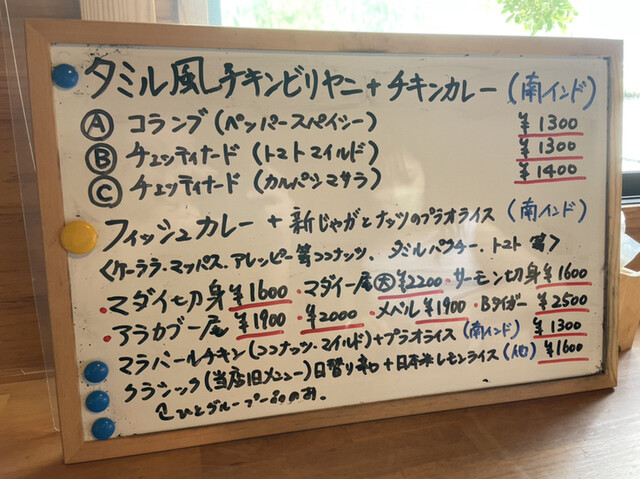 タミル風チキンビリヤニ+チキンカレー(南インド)
Ⓐ コランブ(ペッパースペイシー) ¥1300
Ⓑ チェッティナード(トマトマイルド) ¥1300
Ⓒ チェッティナード(カルパシマサラ) ¥1400
フィッシュカレー+新じゃがとナッツのプラオライス(南インド)
〈ケーララ・マッパス、アレッピー等ココナッツ、タミルパクチー、トマト等〉
・マダイ切身¥1600 ・マダイ一尾 大 ¥2200 ・サーモン切身¥1600
・アラカブ一尾¥1900 ・¥2000 ・メバル¥1900 ・Bタイガー ¥2500
マラバールチキン(ココナッツ・マイルド)+プラオライス(南インド) ¥1300
クラシック(当店旧メニュー)日替り辛口+日本米レモンライス(他) ¥1600
ひとグループ一品のみ。